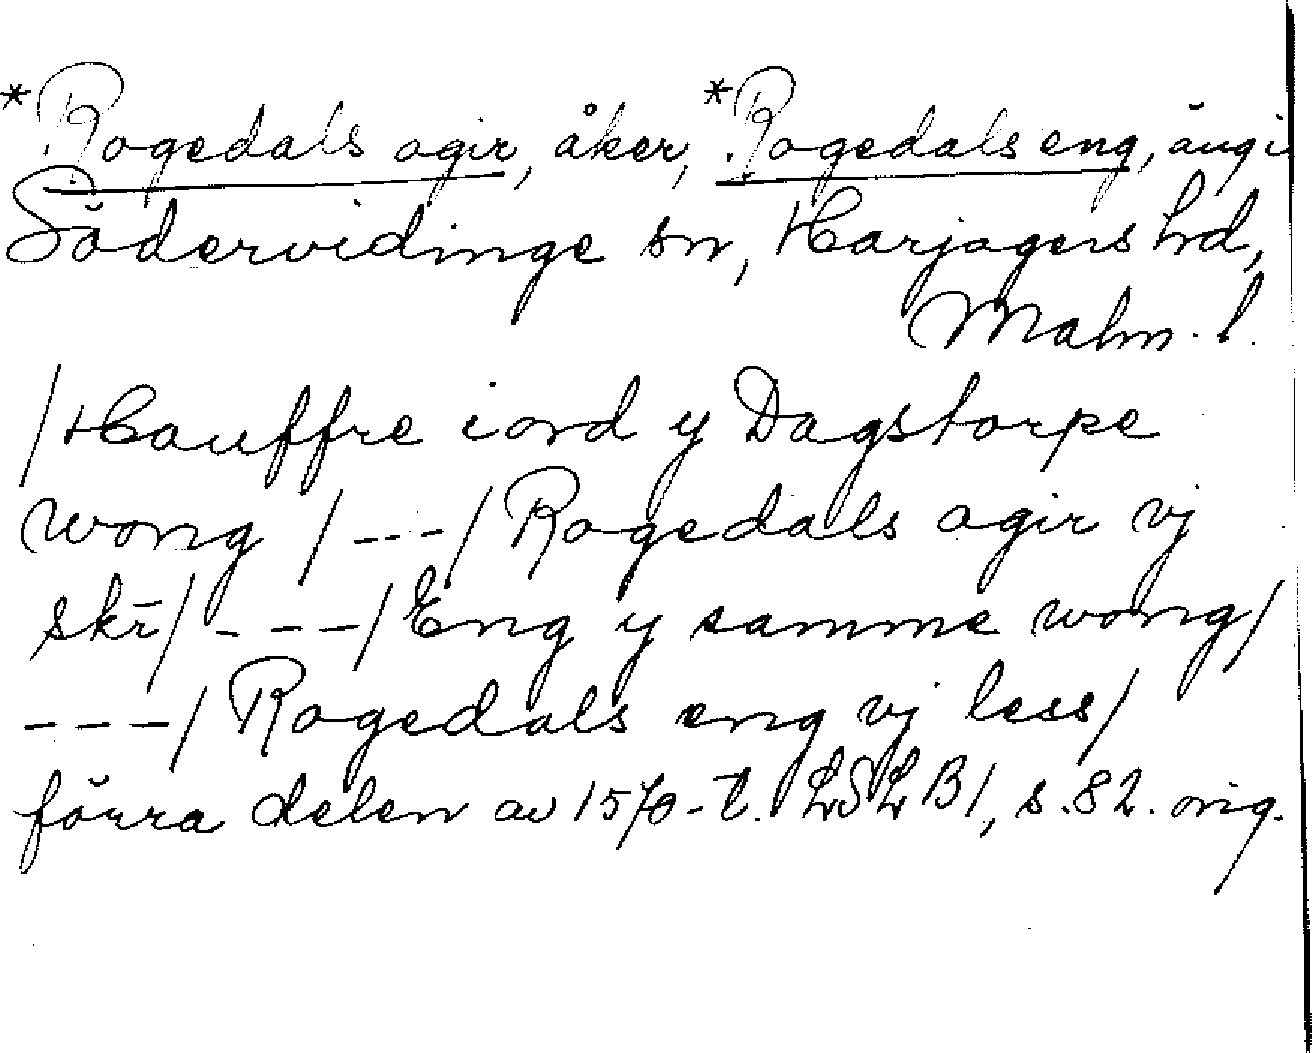 *Rogedals agir, åker, *Rogedals eng, äng i
Södervidinge sn, Harjagers hd,
Malm. l.
/Hauffre iord y Dagstorpe
wong /---/ Rogedals agir vj
skr̄/ ---/ Eng y samme wong/
---/ Rogedals eng vj less/
förra delen av 1570-t. LSLB1, s. 82. orig.